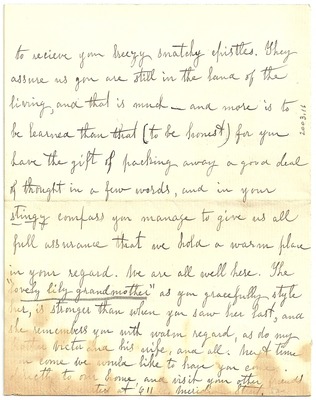 to recieve your breezy snatchy epistles. They
assure us you are still in the land of the
living, and that is much — and more is to
be learned than that (to be honest) for you
have the gift of packing away a good deal
of thought in a few words, and in your
stingy compass you manage to give us all
full assurance that we hold a warm place
in your regard. We are all well here. The
"lovely lily grandmother" as you gracefully style
her, is stronger than when you saw her last, and
she remembers you with warm regard, as do my
and his wife, and all. Next time
you come we would like to have you come
directly to our home and visit your other friends
at
2003.16